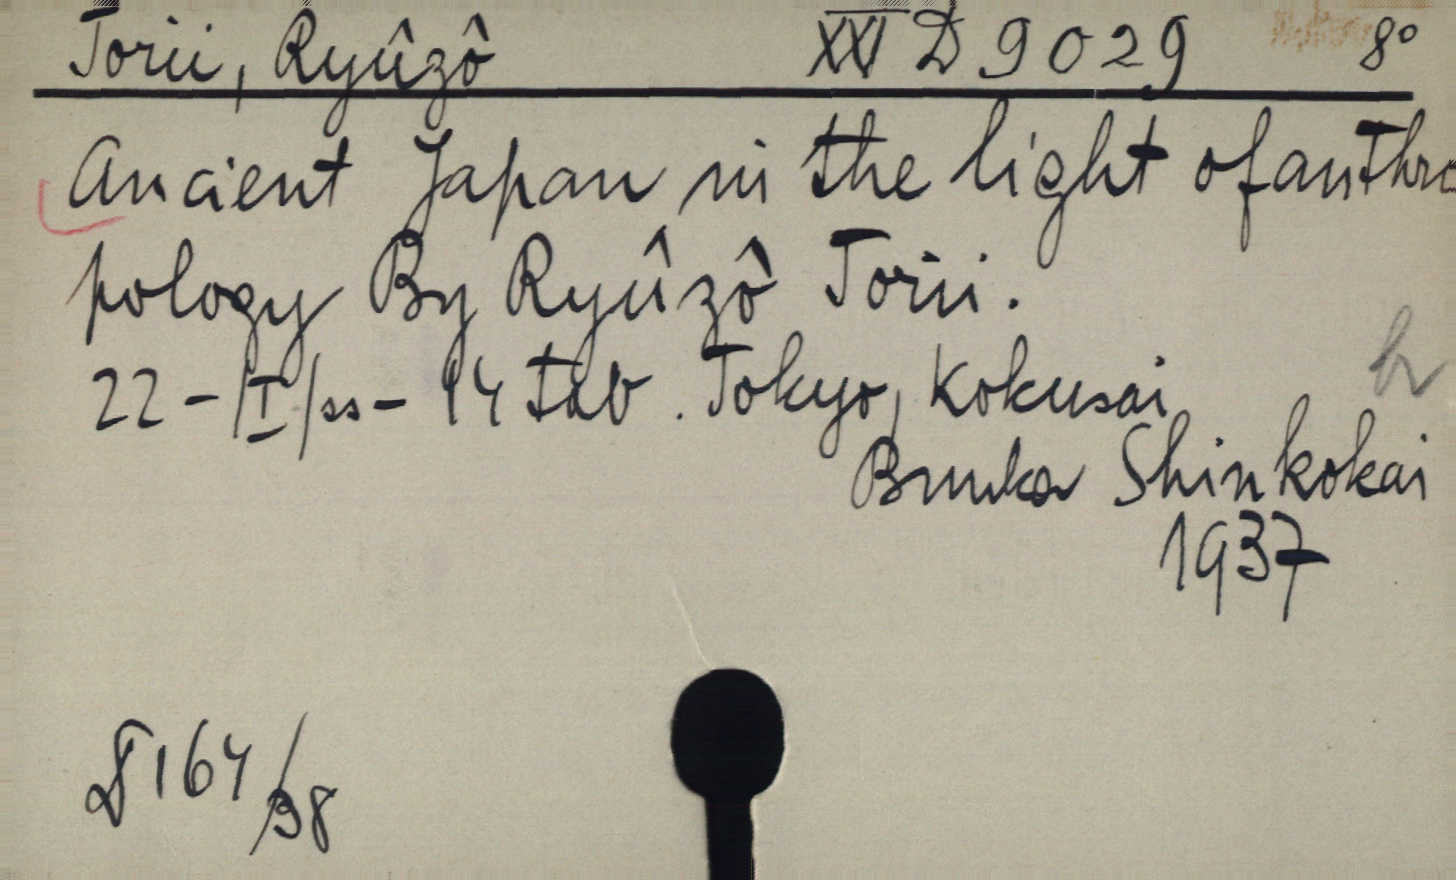 Torii, Ryûzô XXI D 9029 8°
Ancient Japan in the light of anthro
pology By Ryûzô Torii.
22 - /I/ ss - 14 Tab. Tokyo, Kokusai
Bunka Shinkokai
1937
164/38